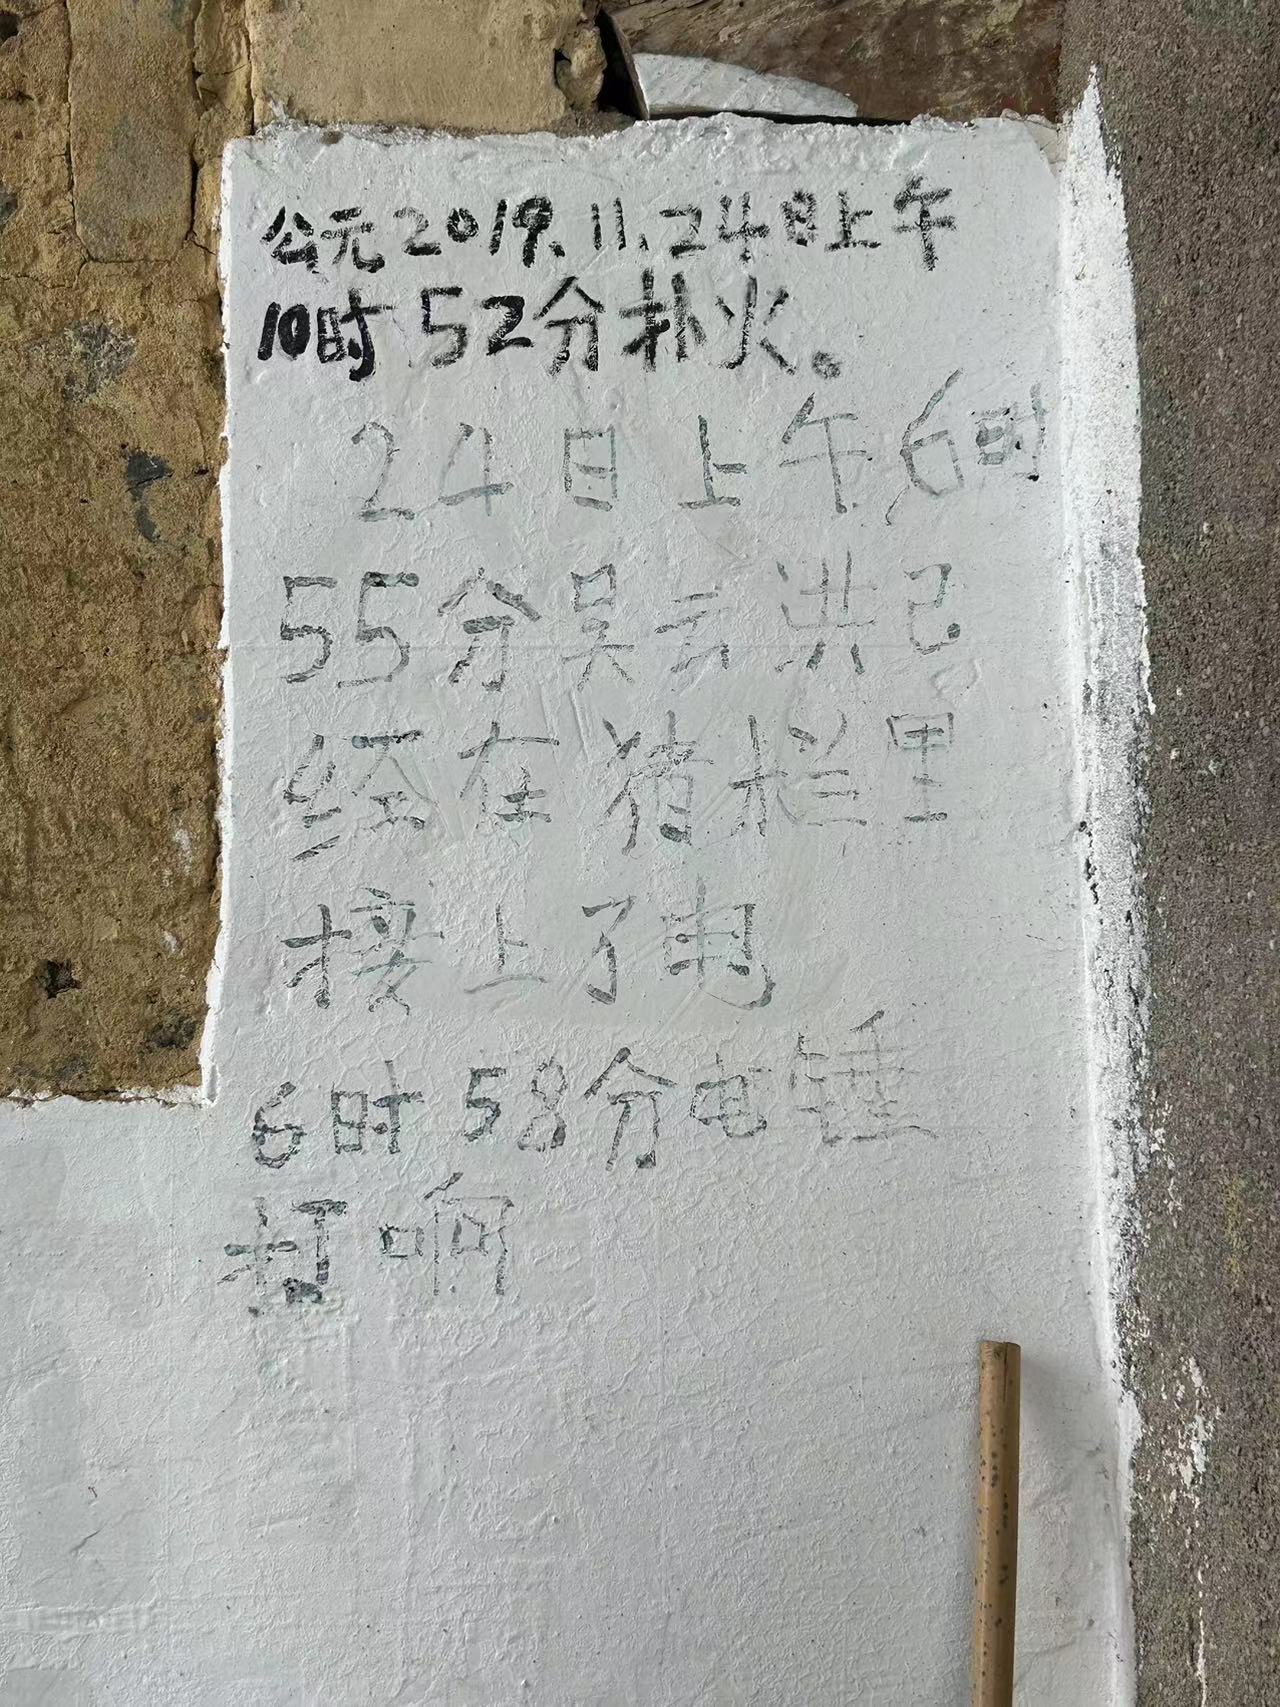 公元2019.11.24日上午
10时52分扑火。
24日上午6时
55分吴云洪已
经在猪栏里
接上了电
6时58分电锤
打响